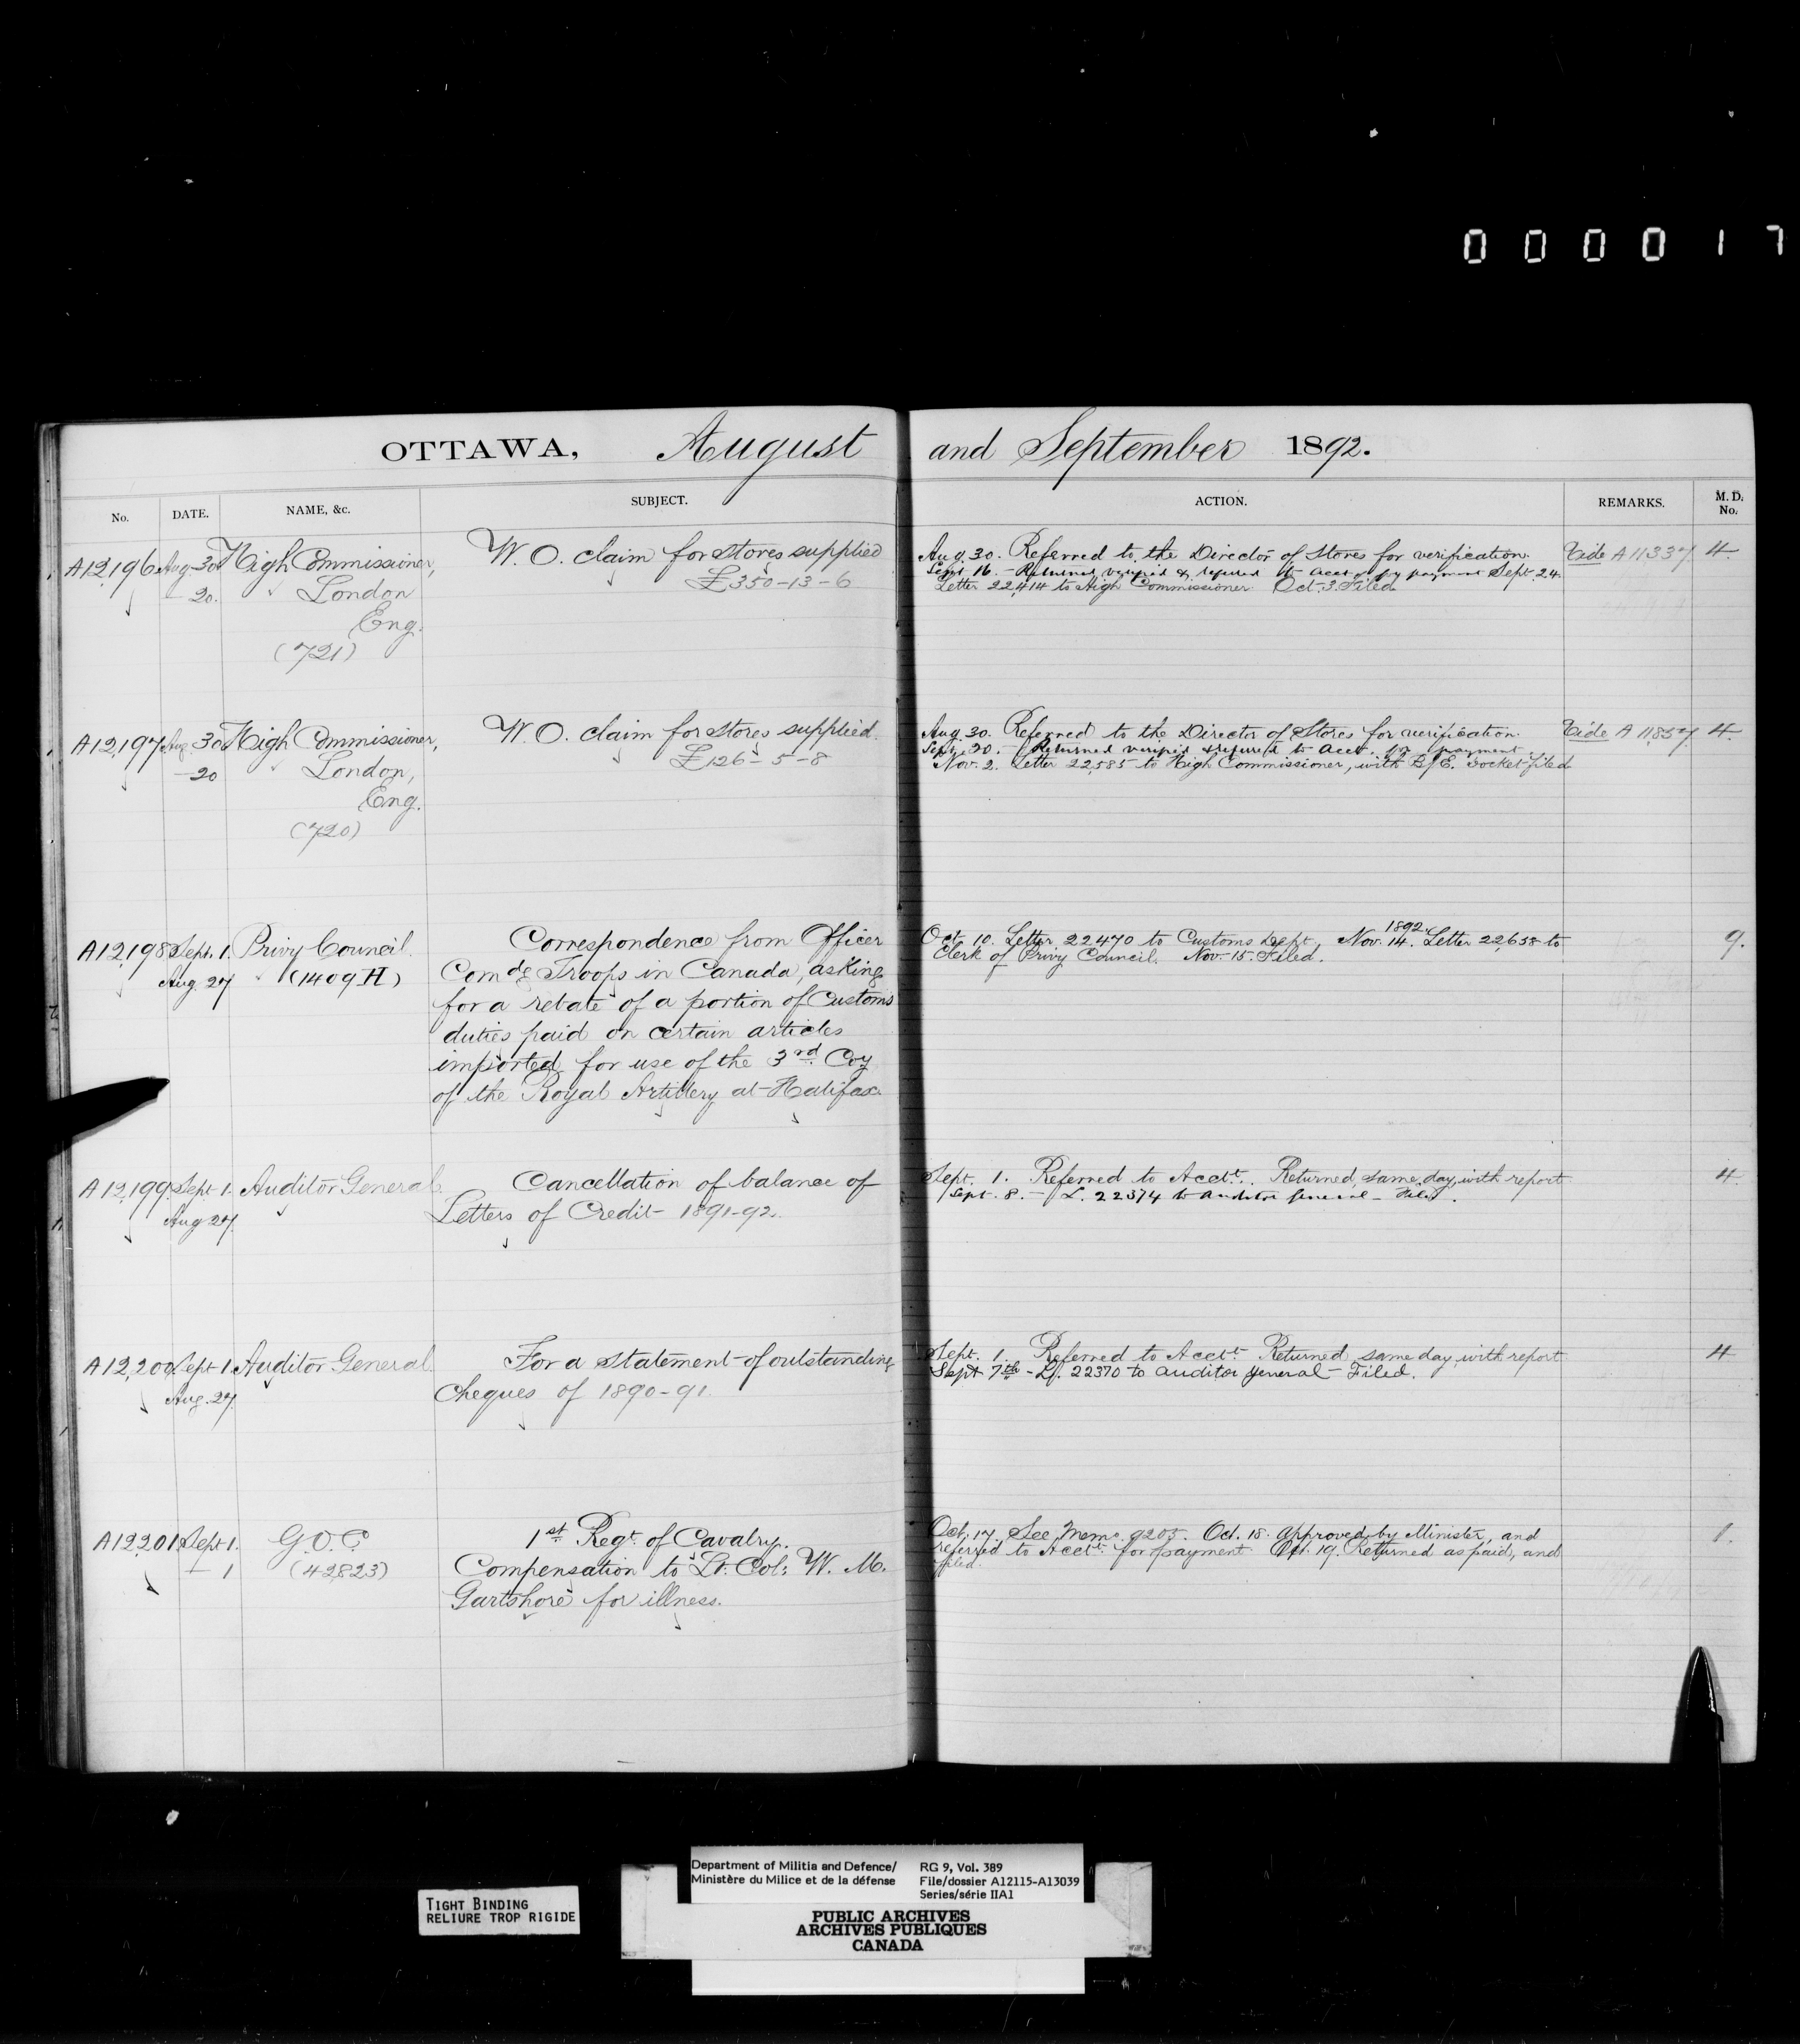 000017
OTTAWA, August and September 1892.
No. DATE. NAME, &c. SUBJECT. ACTION. REMARKS. M. D. No.
A12,196 Aug. 30 High Commissioner, W. O. claim for Stores supplied Aug. 30. Referred to the Director of Stores for verification. Vide A 11337 4.
20. London £350-13-6 Sept. 16. - Returned verified & referred to Acct. for payment Sept. 24.
Eng. Letter 22,414 to High Commissioner Oct. 3. Filed
(721)
A12,197 Aug. 30 High Commissioner, W. O. claim for Stores supplied. Aug. 30. Referred to the Director of Stores for verification. Vide A 11,857 4.
20 London, £126-5-8 Sept. 20. - Returned verified & referred to Acct. for payment.
Eng. Nov. 2. Letter 22,585 to High Commissioner, with B/E. Docket filed
(720)
A12,198 Sept. 1. Privy Council. Correspondence from Officer Oct. 10. Letter 22470 to Customs Dept, Nov. 14. 1892. Letter 22,658 to 9.
Aug. 27 (1409 H) Comdg Troops in Canada, asking Clerk of Privy Council. Nov. 15. Filed.
for a rebate of a portion of Customs
duties paid on certain articles
imported for use of the 3rd Coy
of the Royal Artillery at Halifax
A12,199 Sept 1. Auditor General. Cancellation of balance of Sept. 1. Referred to Acctt. Returned same day, with report 4.
Aug 27. Letters of Credit 1891-92. Sept. 8. - L. 22374 to Auditor General - Filed.
A12,200 Sept 1. Auditor General. For a statement of outstanding Sept. 1. Referred to Acctt. Returned same day, with report 4
Aug. 27. Cheques of 1890-91. Sept 7th - L. 22370 to Auditor General - Filed.
A12,201 Sept 1. G.O.C. 1st Regt. of Cavalry. Oct. 17. See Memo 9205. Oct. 18. Approved by Minister, and 1.
1 (42823) Compensation to Lt. Col: W. M. referred to Acctt. for payment. Oct. 19. Returned as paid, and
Gartshore for illness. filed.
Department of Militia and Defence/
Ministère du Milice et de la défense
RG 9, Vol. 389
File/dossier A12115-A13039
Series/série IIA1
TIGHT BINDING
RELIURE TROP RIGIDE
PUBLIC ARCHIVES
ARCHIVES PUBLIQUES
CANADA